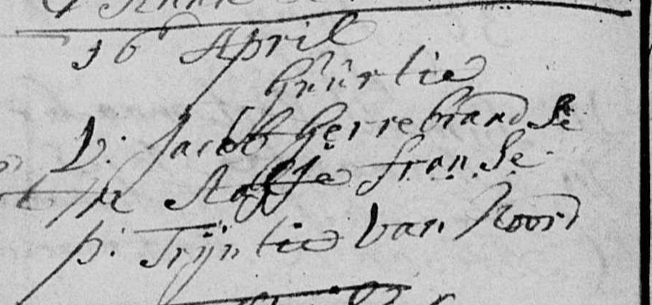 16 April
Guurtie
V: Jacob Gerrebrand Se
M Aafje fran. Se
p: Trijntie van Noord